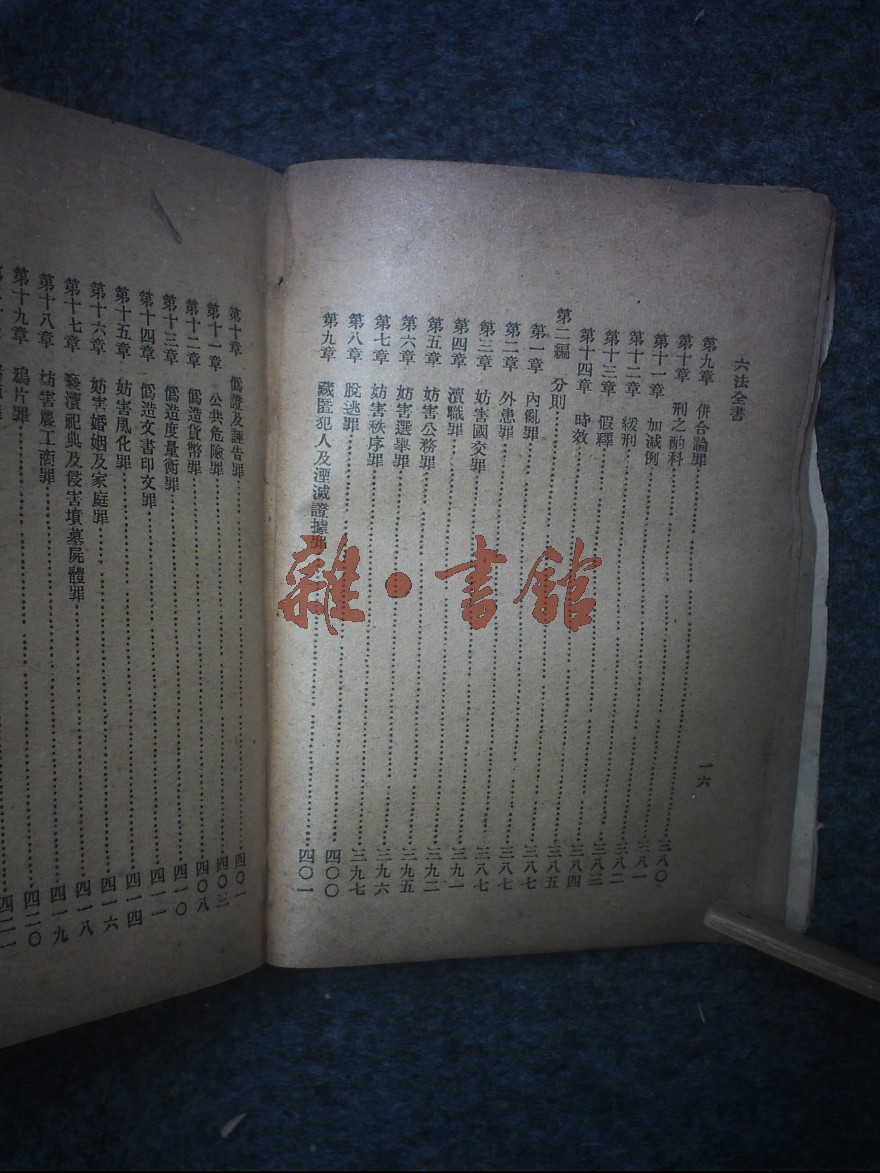 六法全書
一六
第九章 併合論罪……三八〇
第十章 刑之酌科……三八一
第十一章 加減例……三八二
第十二章 緩刑……三八三
第十三章 假釋……三八四
第十四章 時效……三八五
第二編 分則……三八七
第一章 內亂罪……三八七
第二章 外患罪……三八七
第三章 妨害國交罪……三九一
第四章 瀆職罪……三九二
第五章 妨害公務罪……三九五
第六章 妨害選舉罪……三九六
第七章 妨害秩序罪……三九七
第八章 脫逃罪……四〇〇
第九章 藏匿犯人及湮滅證據罪……四〇一
第十章 偽證及誣告罪……四〇一
第十一章 公共危險罪……四〇三
第十二章 偽造貨幣罪……四〇八
第十三章 偽造度量衡罪……四一〇
第十四章 偽造文書印文罪……四一一
第十五章 妨害風化罪……四一四
第十六章 妨害婚姻及家庭罪……四一六
第十七章 褻瀆祀典及侵害墳墓屍體罪……四一八
第十八章 妨害農工商罪……四一九
第十九章 鴉片罪……四二〇
四二一
雜·書館